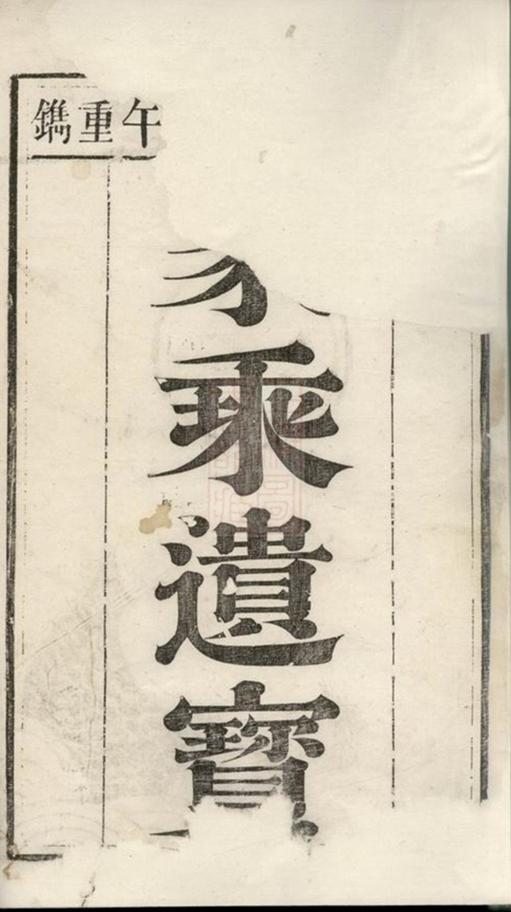 午重鐫
家乘遺寶